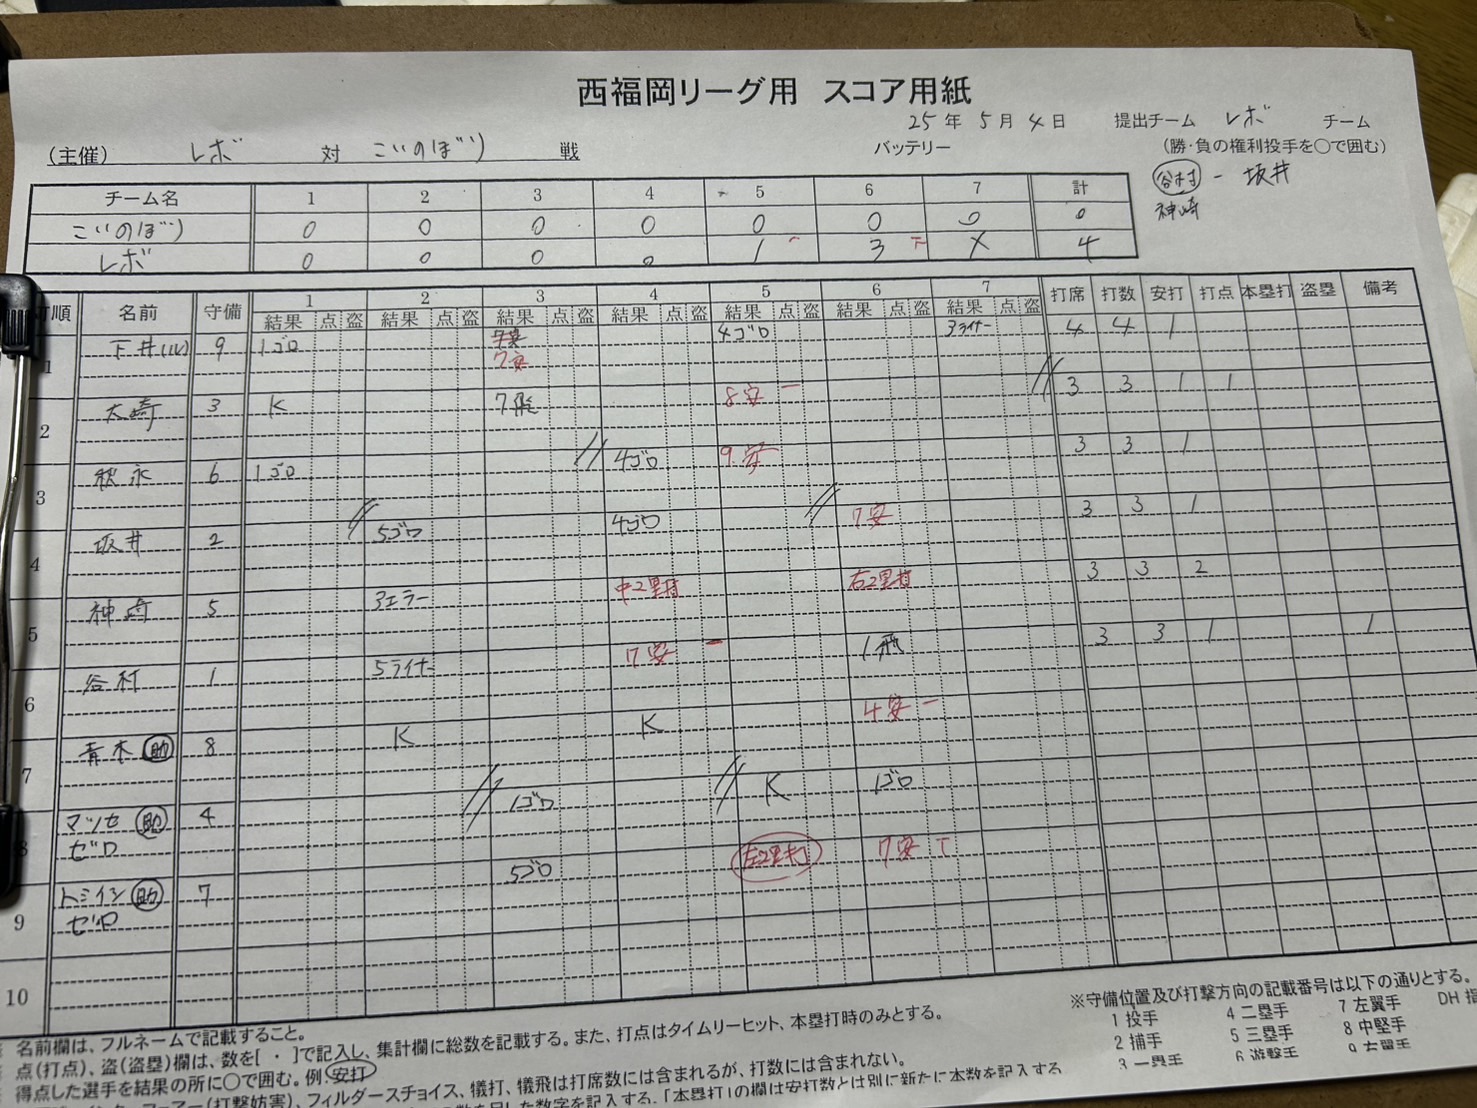 西福岡リーグ用 スコア用紙
25年 5月 4日 提出チーム レボ チーム
(主催) レボ 対 こいのぼり 戦 バッテリー (勝・負の権利投手を○で囲む)
谷村 - 坂井
神崎
チーム名 1 2 3 4 5 6 7 計
こいのぼり 0 0 0 0 0 0 0 0
レボ 0 0 0 0 1 3 X 4
打順 名前 守備 1 2 3 4 5 6 7 打席 打数 安打 打点 本塁打 盗塁 備考
結果 点 盗 結果 点 盗 結果 点 盗 結果 点 盗 結果 点 盗 結果 点 盗 結果 点 盗
1 下井(ル) 9 1ゴロ 7安 4ゴロ 3ライナー 4 4 1
2 大崎 3 K 7飛 8安 一 3 3 1 1
3 秋永 6 1ゴロ 4ゴロ 9安 3 3 1
4 坂井 2 5ゴロ 4ゴロ 7安 3 3 1
5 神崎 5 3エラー 中2塁打 右2塁打 3 3 2
6 谷村 1 5ライナー 7安 一 1飛 3 3 1 1
7 青木 助 8 K K 4安 一
8 マツセ 助 4 1ゴロ K 1ゴロ
ゼロ
9 トミイシ 助 7 5ゴロ 左2塁打 7安 T
ゼロ
10
名前欄は、フルネームで記載すること。
点(打点)、盗(盗塁)欄は、数を[ ・ ]で記入し、集計欄に総数を記載する。また、打点はタイムリーヒット、本塁打時のみとする。
得点した選手を結果の所に○で囲む。例.安打
(打撃妨害)、フィルダースチョイス、犠打、犠飛は打席数には含まれるが、打数には含まれない。
数字を記入する。「本塁打」の欄は安打数とは別に新たに本数を記入する
※守備位置及び打撃方向の記載番号は以下の通りとする。
1 投手 4 二塁手 7 左翼手 DH 指
2 捕手 5 三塁手 8 中堅手
3 一塁手 6 遊撃手 9 右翼手